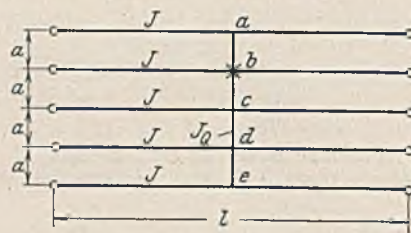 J a
a
J b
a
J c
a
J_Q
J d
a
J e
l